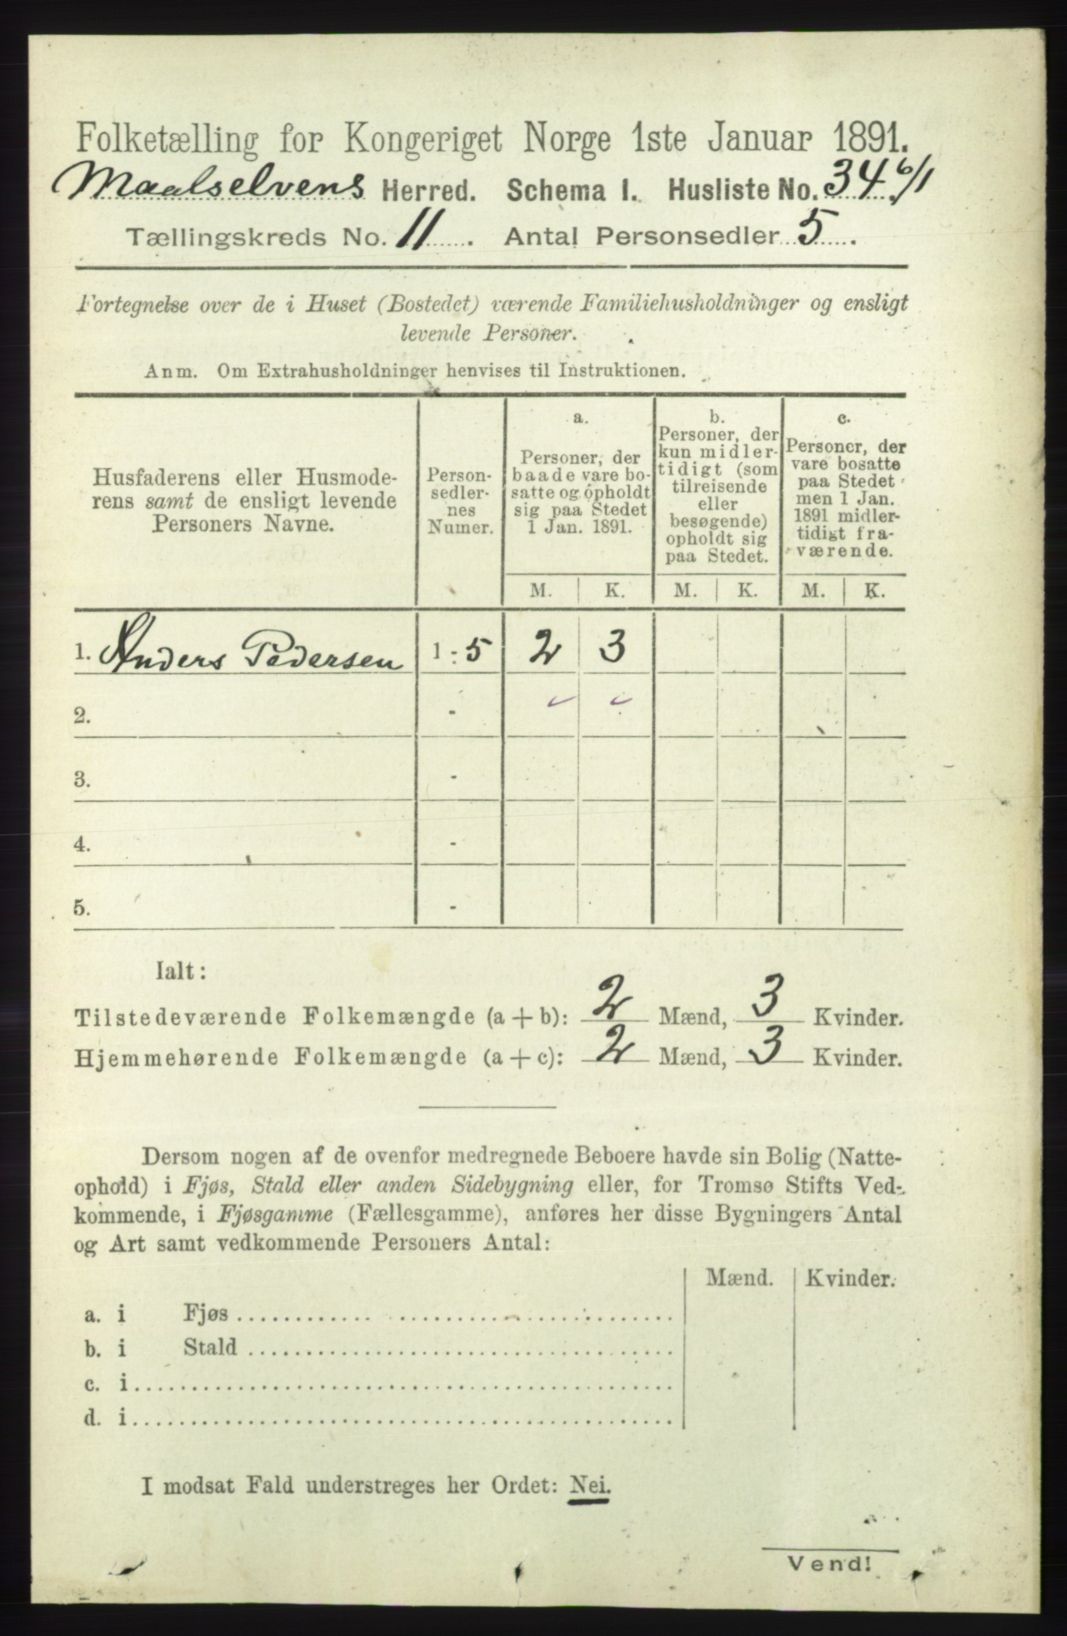 Folketælling for Kongeriget Norge 1ste Januar 1891.
Maalselvens Herred. Schema I. Husliste No. 34. 6/1
Tællingskreds No. 11. Antal Personsedler 5.
Fortegnelse over de i Huset (Bostedet) værende Familiehusholdninger og ensligt
levende Personer.
Anm. Om Extrahusholdninger henvises til Instruktionen.
Husfaderens eller Husmode-
rens samt de ensligt levende
Personers Navne.
Person-
sedler-
nes
Numer.
a.
Personer, der
baade vare bo-
satte og opholdt
sig paa Stedet
1 Jan. 1891.
b.
Personer, der
kun midler-
tidigt (som
tilreisende
eller
besøgende)
opholdt sig
paa Stedet.
c.
Personer, der
vare bosatte
paa Stedet
men 1 Jan.
1891 midler-
tidigt fra-
værende.
M. K. M. K. M. K.
1. Anders Pedersen 1-5 2 3
2. -
3. -
4. -
5. -
Ialt:
Tilstedeværende Folkemængde (a+b): 2 Mænd, 3 Kvinder.
Hjemmehørende Folkemængde (a+c): 2 Mænd, 3 Kvinder.
Dersom nogen af de ovenfor medregnede Beboere havde sin Bolig (Natte-
ophold) i Fjøs, Stald eller anden Sidebygning eller, for Tromsø Stifts Ved-
kommende, i Fjøsgamme (Fællesgamme), anføres her disse Bygningers Antal
og Art samt vedkommende Personers Antal:
Mænd. Kvinder.
a. i Fjøs
b. i Stald
c. i
d. i
I modsat Fald understreges her Ordet: Nei.
Vend!